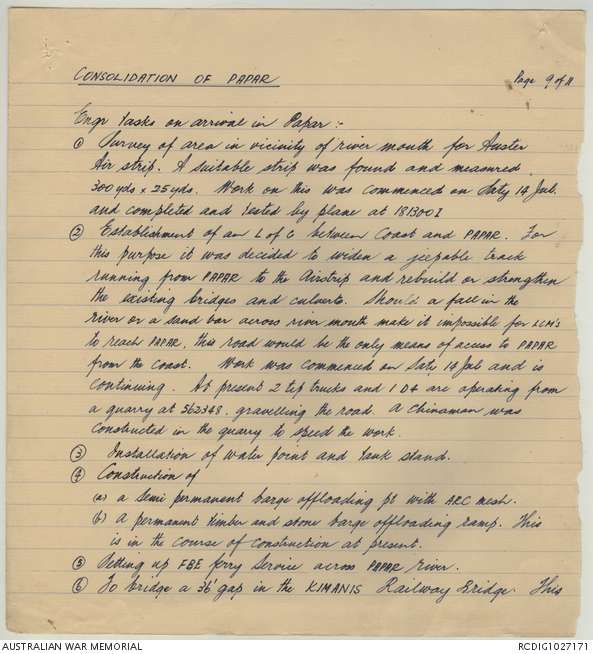 CONSOLIDATION OF PAPAR
Page 9 of 11
Engr Tasks on arrival in Papar :-
① Survey of area in vicinity of river mouth for Auster
Air strip. A suitable strip was found and measured
300 yds x 25 yds. Work on this was commenced on Saty 14 Jul.
and completed and tested by plane at 181300I
② Establishment of an L of C between Coast and PAPAR. For
this purpose it was decided to widen a jeepable track
running from PAPAR to the Airstrip and rebuild or strengthen
the existing bridges and culverts. Should a fall in the
river or a sand bar across river mouth make it impossible for LCM's
to reach PAPAR, this road would be the only means of access to PAPAR
from the coast. Work was commenced on Saty 14 Jul and is
continuing. At present 2 tip trucks and 1 D4 are operating from
a quarry at 562348, gravelling the road. A Chinaman was
constructed in the quarry to speed the work.
③ Installation of water point and tank stand.
④ Construction of
(a) a semi permanent barge offloading pt with ARC mesh.
(b) A permanent timber and stone barge offloading ramp. This
is in the course of construction at present.
⑤ Setting up FBE ferry service across PAPAR river.
⑥ To bridge a 36' gap in the KIMANIS Railway Bridge. This
AUSTRALIAN WAR MEMORIAL
RCDIG1027171